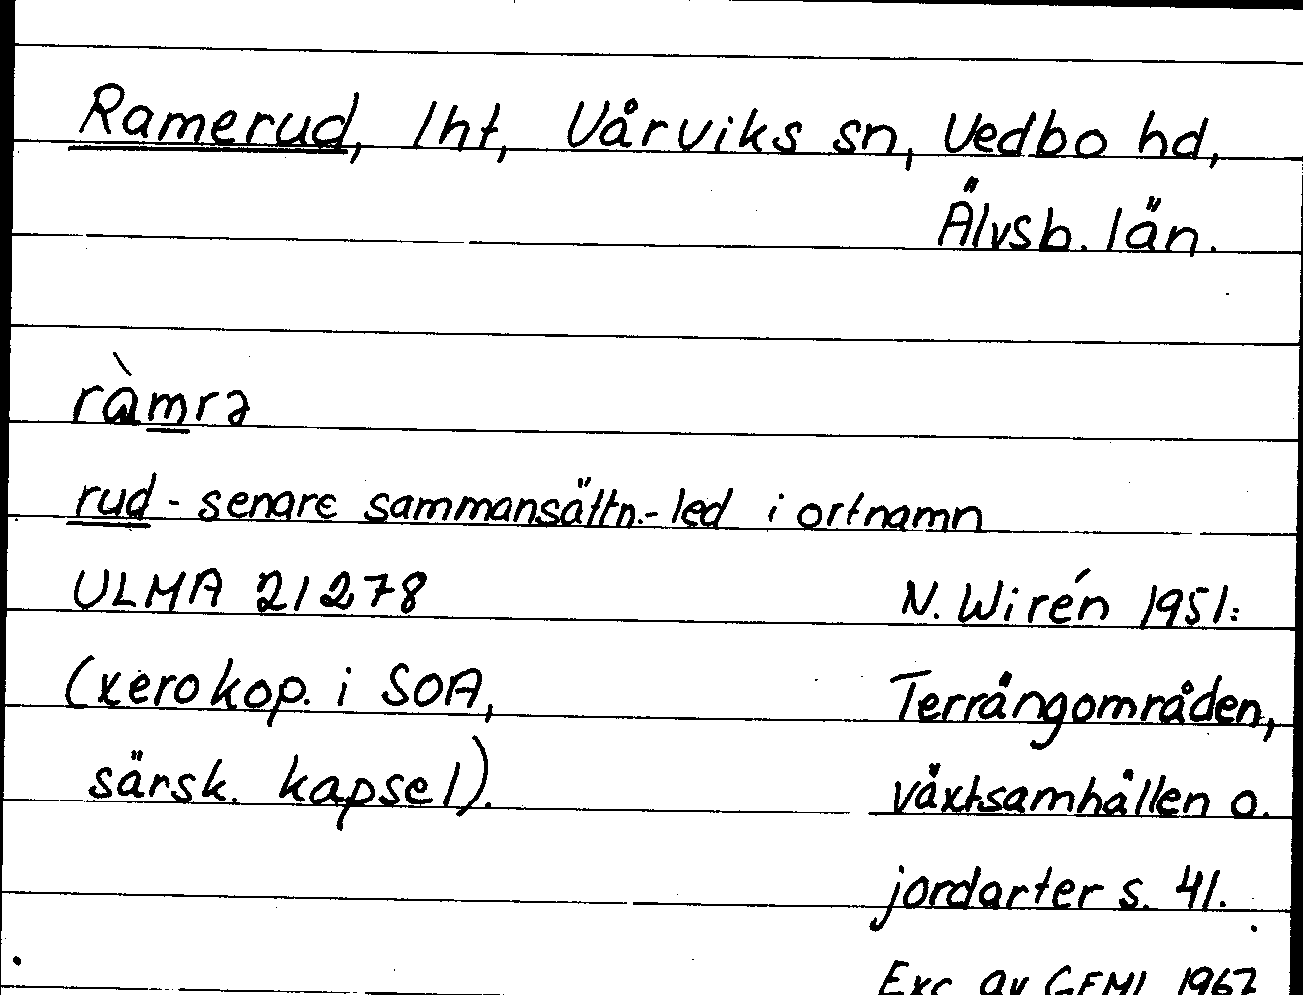 Ramerud, lht, Vårviks sn, Vedbo hd,
Älvsb. län.
ràmrə
rud - senare sammansättn.-led i ortnamn
ULMA 21278
N. Wirén 1951:
(xerokop. i SOA,
Terrängområden,
särsk. kapsel).
växtsamhällen o.
jordarter s. 41.
Exc av GEML 1967